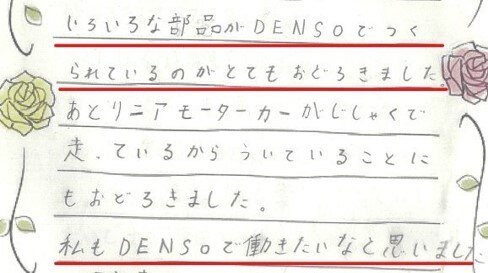 いろいろな部品がDENSOでつく
られているのがとてもおどろきました。
あとリニアモーターカーがじしゃくで
走っているからういていることに
もおどろきました。
私もDENSOで働きたいなと思いました